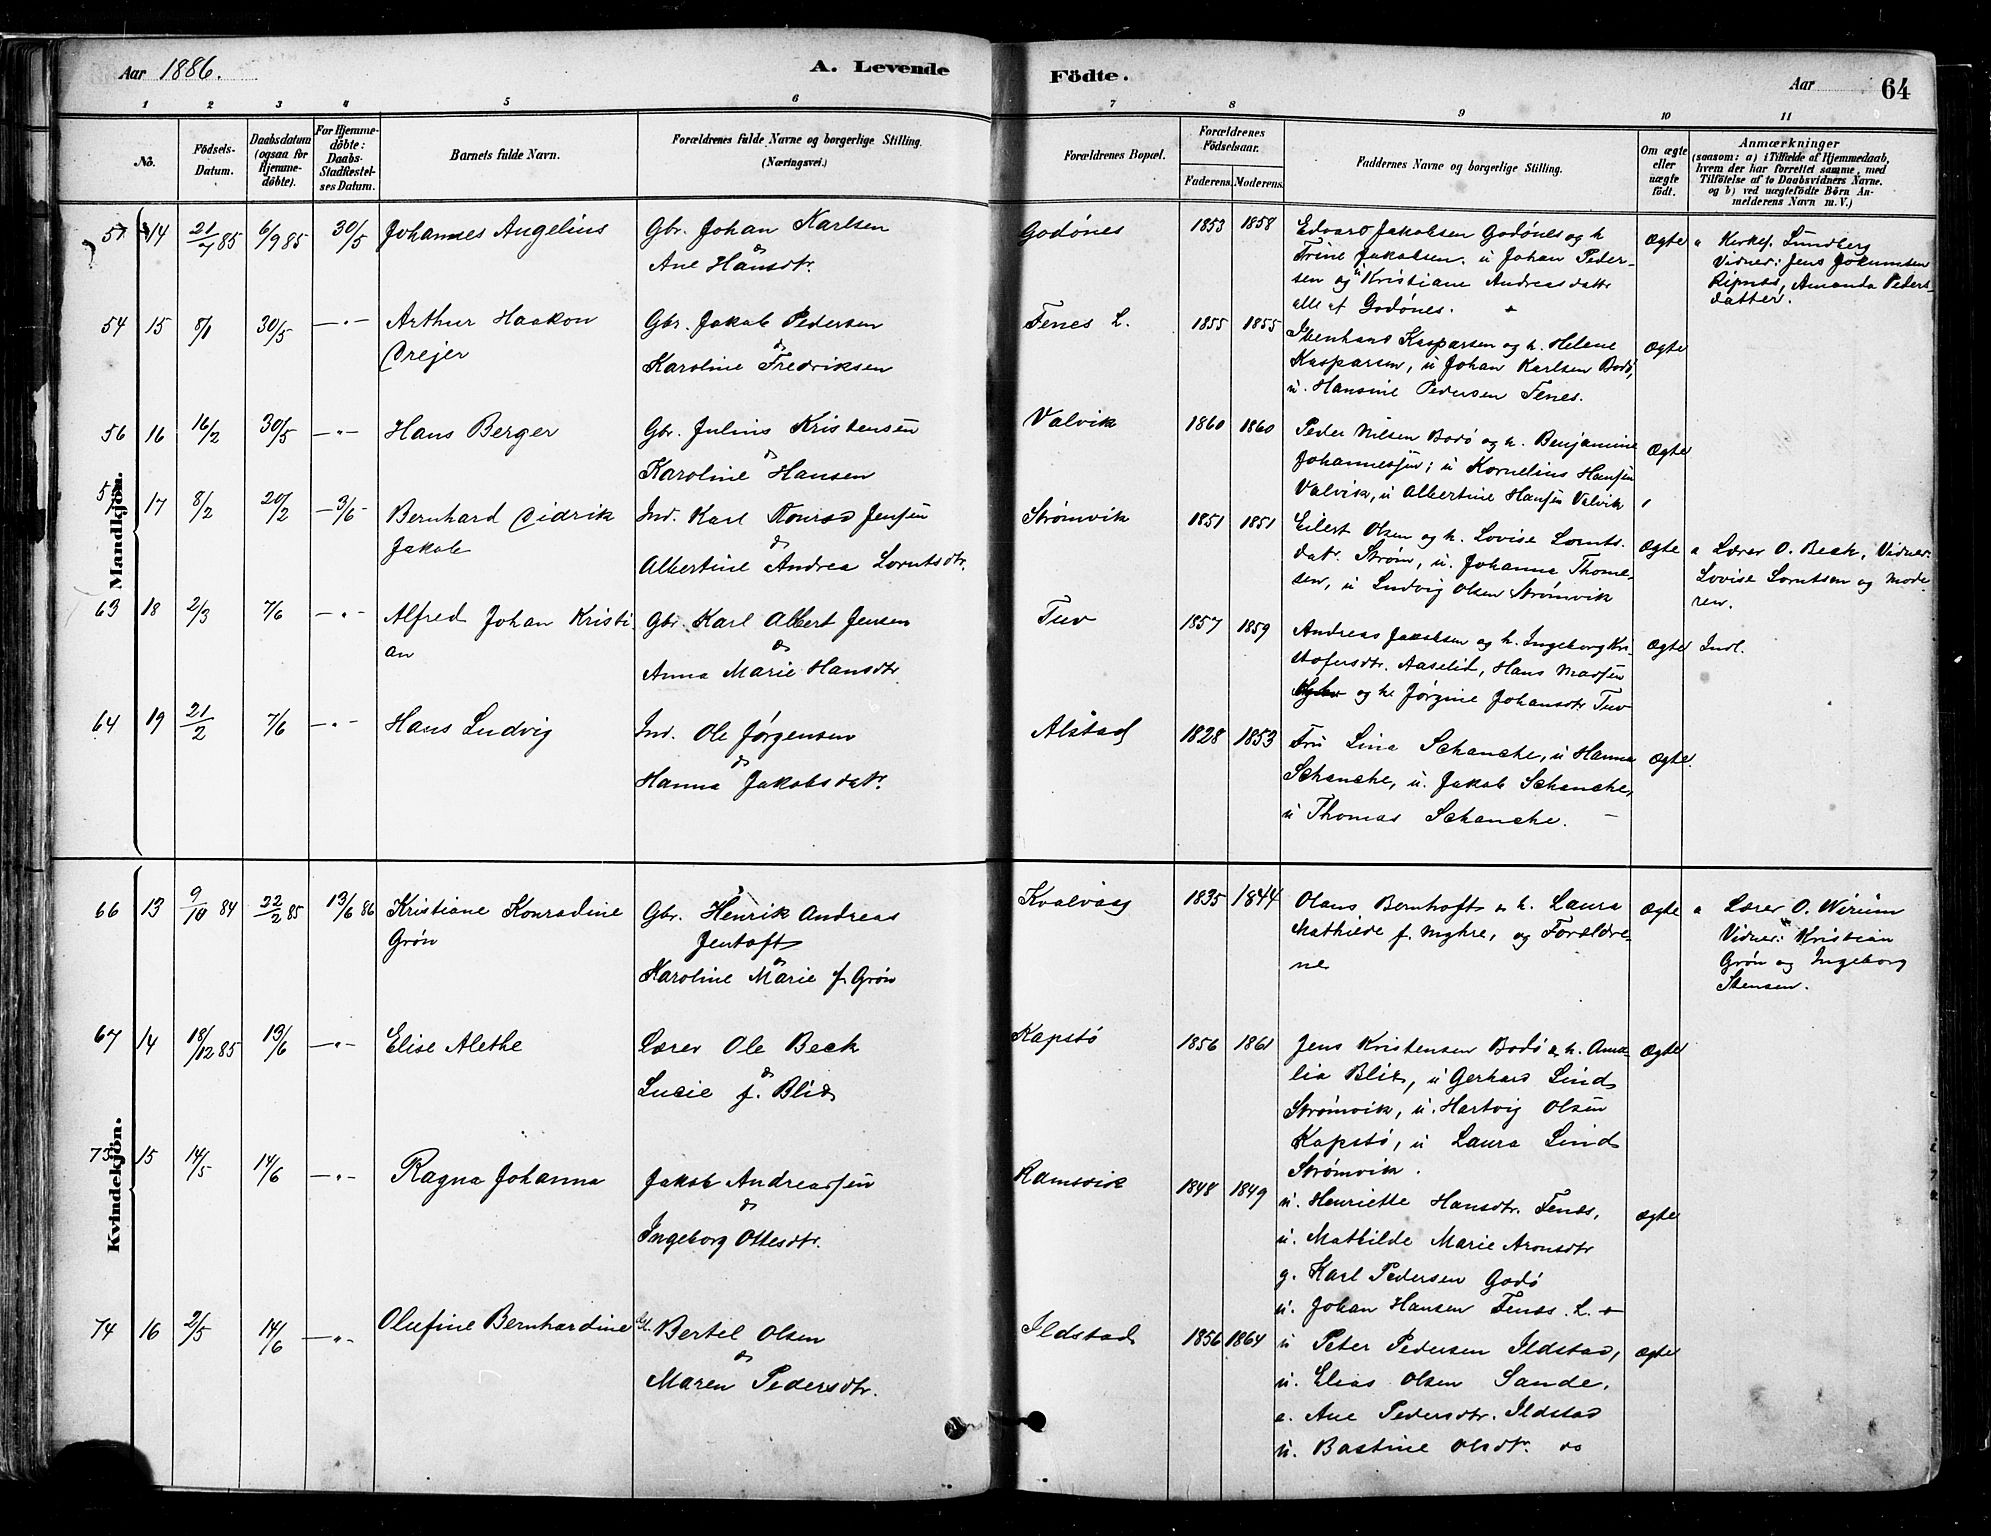 Aar 1886.
A. Levende
Födte.
Aar
64
1 2 3 4 5 6 7 8 9 10 11
No.
Födsels-
Datum.
Daabsdatum
(ogsaa for
Hjemme-
döbte).
For Hjemme-
döbte:
Daabs-
Stadfæstel-
ses Datum.
Barnets fulde Navn.
Forældrenes fulde Navne og borgerlige Stilling.
(Næringsvei.)
Forældrenes Bopæl.
Forældrenes
Födselsaar.
Faderens. Moderens.
Faddernes Navne og borgerlige Stilling.
Om ægte
eller
uægte
født.
Anmærkninger
(saasom: a) i Tilfælde af Hjemmedaab,
hvem der har forrettet samme, med
Tilföielse af to Daabsvidners Navne.
og b) ved uægtefödte Börn An-
melderens Navn m. V.)
Mandkjön.
57 14 21/7 85 6/9 85 30/5 Johannes Angelius
Gbr. Johan Karlsen
Ane Hansdtr.
Godønes 1853 1858
Edvard Jakobsen Godønes og h
Trine Jakobsen. u Johan Peder-
sen og Kristiane Andreasdatter
alle af Godønes.
Ægte
a Kirkes. Lundberg
Vidner: Jens Jokumsen
Ripnes, Amanda Peders
datter.
54 15 8/1 30/5 —"— Arthur Haakon
Crejer
Gbr. Jakob Pedersen
Karoline Fredriksen
Fenes L. 1855 1855
Kasparsen og h. Helene
Kasparsen, u Johan Karlsen Bodø,
u. Hansine Pedersen Fenes.
Ægte
56 16 16/2 30/5 —"— Hans Berger
Gbr. Julius Kristensen
&
Karoline Hansen
Valvik 1860 1860
Peder Nilsen Bodø og h. Benjamine
Johannessen; u Kornelius Hansen
Valvik, u Albertine Hansen Valvik
Ægte
17 8/2 20/2 —3/6— Bernhard Didrik
Jakob
Ind. Karl Konrad Jensen
&
Albertine Andrea Lorntsdtr.
Strømvik 1851 1851
Eilert Olsen og h. Lovise Lornts-
datr. Strøm, u. Johanna Thome-
sen, u Ludvig Olsen Strømvik
Ægte
a Lærer O. Beck, Vidner:
Lovise Lorntsen og Mode
ren.
63 18 2/3 7/6 —"— Alfred Johan Kristi-
an
Gbr. Karl Albert Jensen
&
Anna Marie Hansdtr
Tuv 1857 1859
Andreas Jakobsen og h. Ingeborg Kri-
stofersdtr. Aaselid, Hans Madsen
og h. Jørgine Johansdtr Tuv
Ægte Indl.
64 19 21/2 7/6 —"— Hans Ludvig
Ind. Ole Jørgensen
&
Hanna Jakobsdatr.
Alstad 1828 1853
Fru Lina Schanche, u Hanna
Schanche, u. Jakob Schanche,
u Thomas Schanche.
Ægte.
Kvindekjön.
66 13 9/10 84 22/2 85 13/6 86 Kristiane Konradine
Grøn
Gbr. Henrik Andreas
Jentoft
&
Karoline Marie f. Grøn
Kvalvaag 1835 1844
Olaus Bernhoft & h. Laura
Mathilde f. Myhre, og Forældre-
ne
Ægte
a Lærer O. Wirum
Vidner: Kristian
Grøn og Ingeborg
Stensen.
67 14 18/12 85 13/6 —"— Elise Alethe
Lærer Ole Beck
&
Lucie f. Blix
Kapstø 1856 1861
Jens Kristensen Bodø & h. Ama-
lia Blix, u Gerhard Lind
Strømvik, u. Hartvig Olsen
Kapstø, u Laura Lind
Strømvik.
Ægte
73 15 14/5 14/6 —"— Ragna Johanna
Jakob Andreassen
&
Ingeborg Ottesdtr.
Ramsvik 1848 1849
u. Henriette Hansdtr. Fenes,
u. Mathilde Marie Aronsdtr
g. Karl Pedersen Godø
u. Johan Hansen Fenes. L.
Ægte
74 16 2/5 14/6 —"— Olufine Bernhardine
Bertel Olsen
&
Maren Pedersdtr.
Ildstad 1856 1864
u Peter Pedersen Ildstad,
u. Elias Olsen Sande,
e. Ane Pedersdtr. Ildstad
u. Bastine Olsdtr. do
Ægte